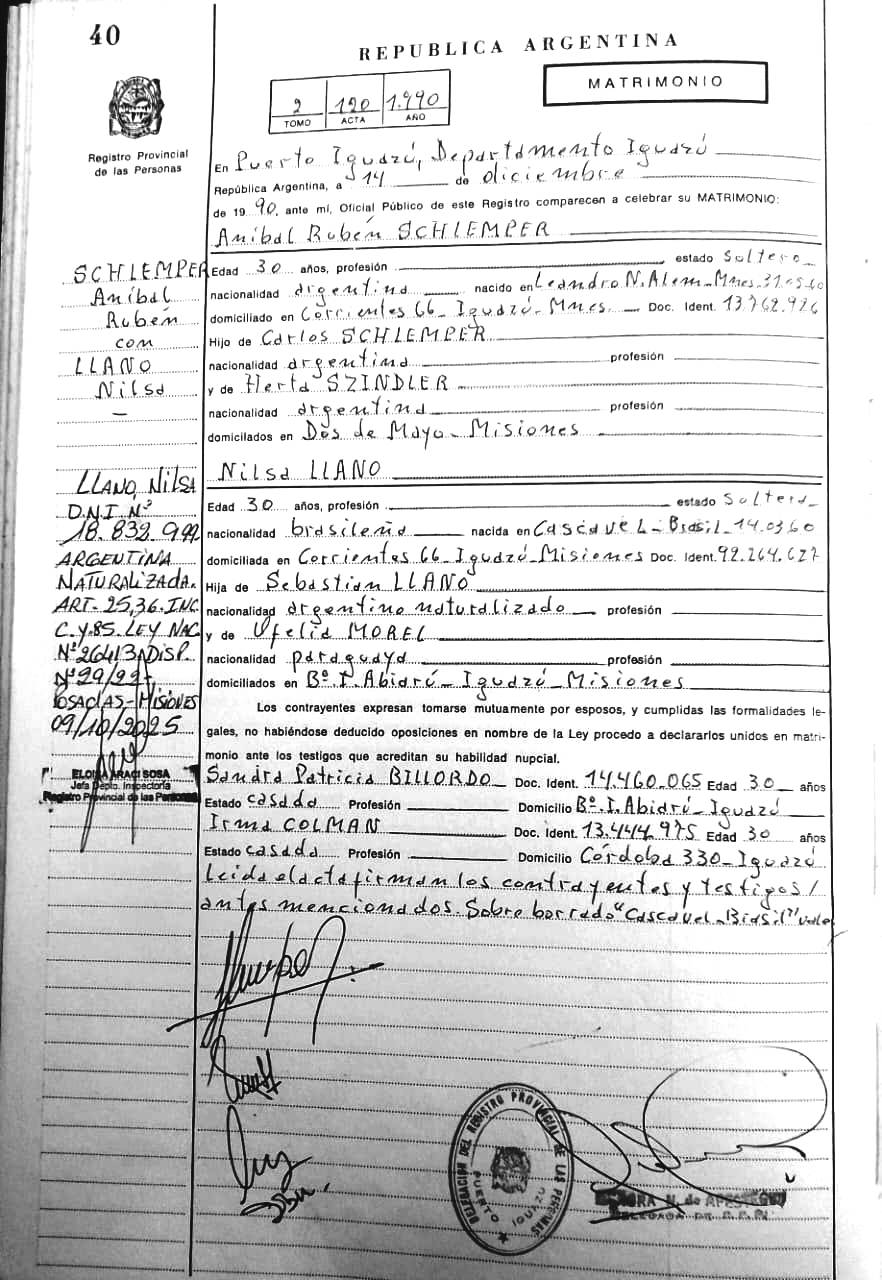 40
REPUBLICA ARGENTINA
MATRIMONIO
2 120 1.990
TOMO ACTA AÑO
Registro Provincial
de las Personas
En Puerto Iguazú, Departamento Iguazú
República Argentina, a 14 de diciembre
de 19 90, ante mí, Oficial Público de este Registro comparecen a celebrar su MATRIMONIO:
Aníbal Rubén SCHLEMPER
SCHLEMPER
Aníbal
Rubén
con
LLANO
Nilsa
—
Edad 30 años, profesión estado Soltero
nacionalidad argentina nacido en Leandro N. Alem - Mnes. 31.05.60
domiciliado en Corrientes 66 - Iguazú - Mnes. Doc. Ident. 13.762.926
Hijo de Carlos SCHLEMPER
nacionalidad argentina profesión
y de Herta SZINDLER
nacionalidad argentina profesión
domicilados en Dos de Mayo - Misiones
Nilsa LLANO
LLANO, NILSA
D.N.I. Nº
18.832.999
ARGENTINA
NATURALIZADA.
ART. 25,36. INC.
C. y. 85. LEY NAC
Nº 26413 DISP.
Nº 29/22-
POSADAS - MISIONES
09/10/2025
ELOISA ARACI SOSA
Jefa Dpto. Inspectoría
Registro Provincial de las Personas
Edad 30 años, profesión estado Soltera
nacionalidad brasileña nacida en CASCAVEL - Brasil - 14.03.60
domiciliada en Corrientes 66 - Iguazú - Misiones Doc. Ident. 92.264.627
Hija de Sebastian LLANO
nacionalidad argentino naturalizado profesión
y de Ofelia MOREL
nacionalidad paraguaya profesión
domiciliados en Bº. I. Abidrú - Iguazú - Misiones
Los contrayentes expresan tomarse mutuamente por esposos, y cumplidas las formalidades le-
gales, no habiéndose deducido oposiciones en nombre de la Ley procedo a declararlos unidos en matri-
monio ante los testigos que acreditan su habilidad nupcial.
Sandra Patricia BILLORDO Doc. Ident. 14.460.065 Edad 30 años
Estado casada Profesión Domicilio Bº. I. Abidrú - Iguazú
Irma COLMAN Doc. Ident. 13.444.975 Edad 30 años
Estado casada Profesión Domicilio Córdoba 330 - Iguazú
Leída el acta firman los contrayentes y testigos /
antes mencionados. Sobre borrado "Cascavel - Brasil" vale
DELEGACION DEL REGISTRO PROVINCIAL DE LAS PERSONAS
PUERTO IGUAZU
N. de
DELEGADA DE